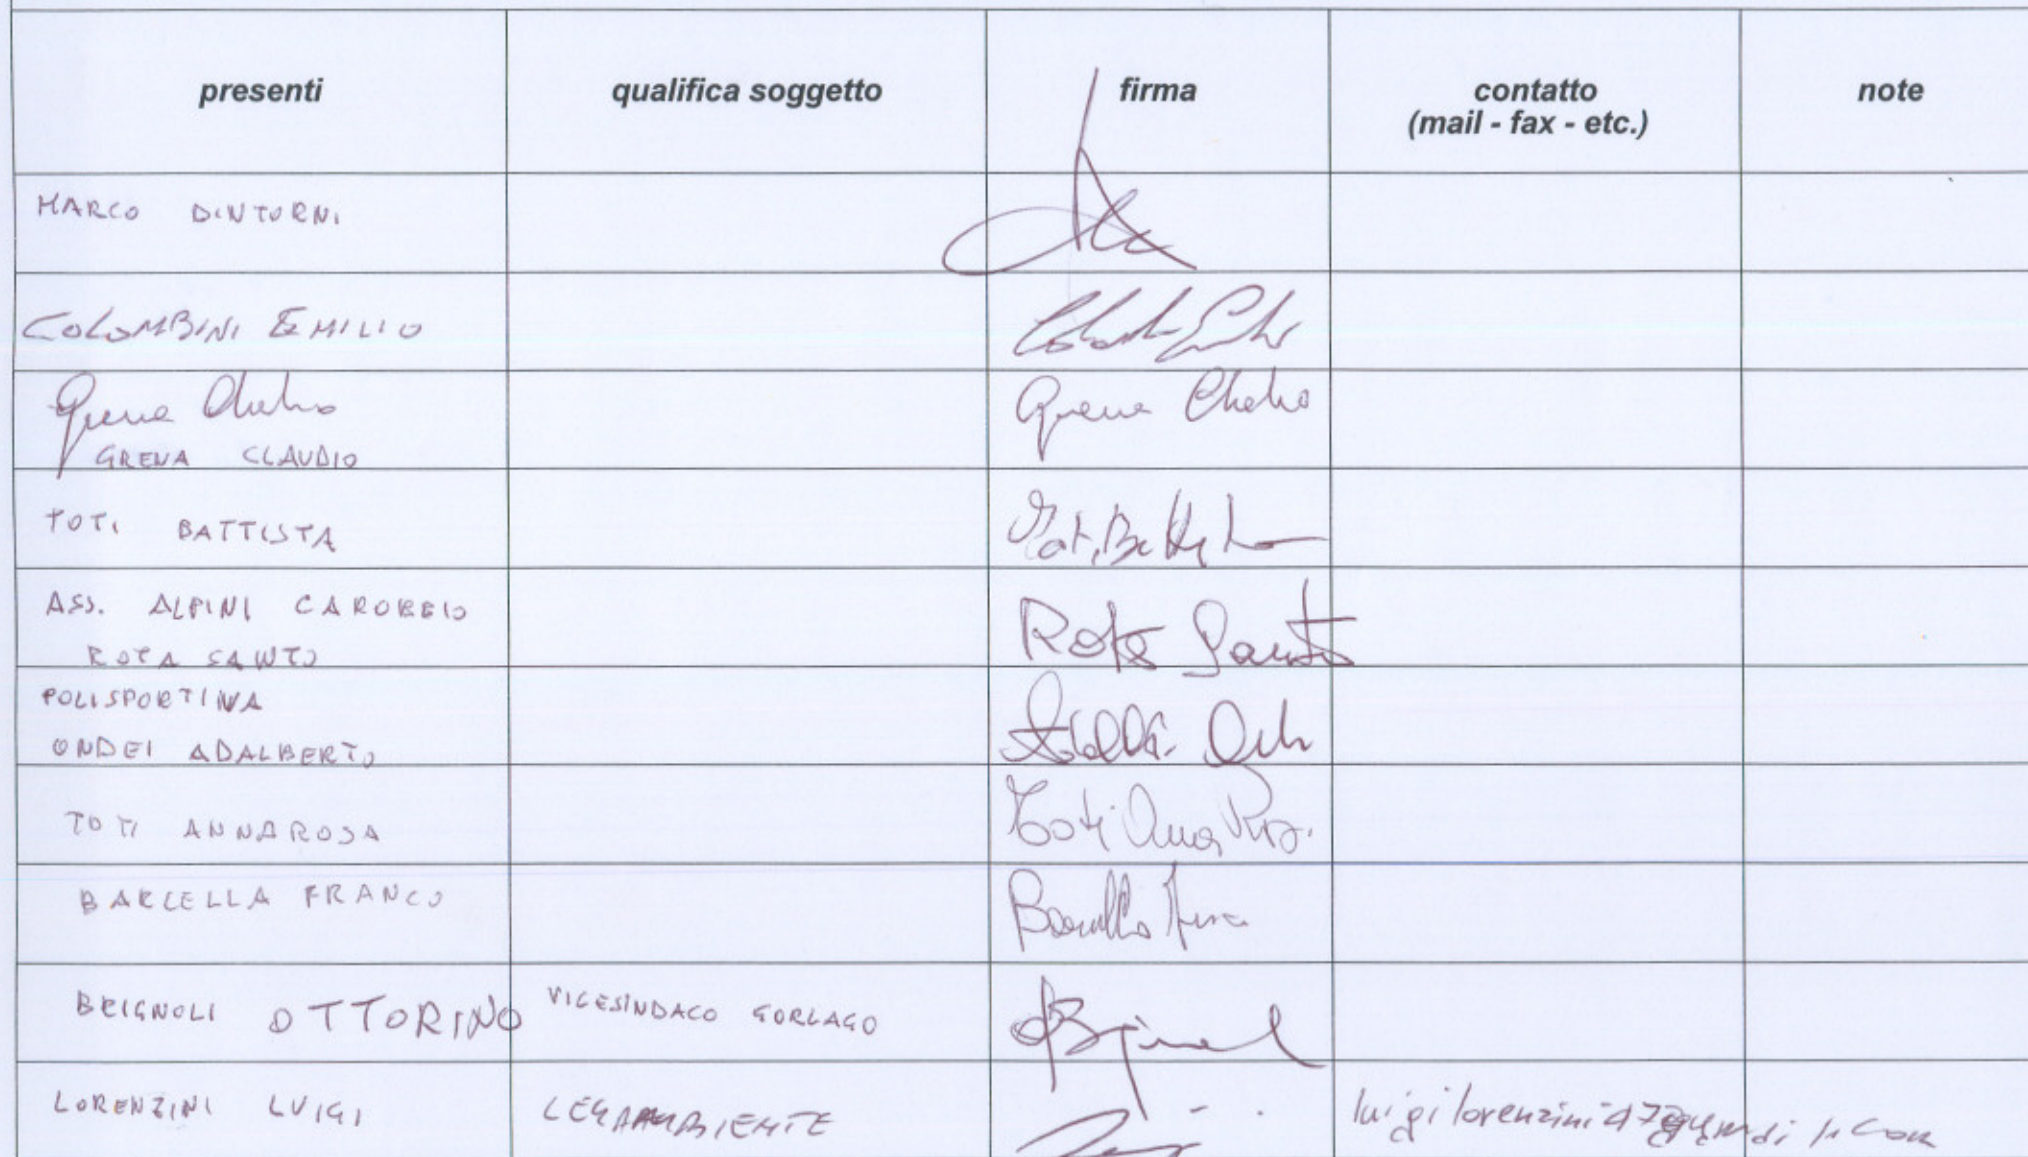 presenti qualifica soggetto firma contatto note
(mail - fax - etc.)
MARCO DINTURNI
COLOMBINI EMILIO
Grena Claudio Grena Claudio
GRENA CLAUDIO
TOTI BATTISTA Toti Battista
ASS. ALPINI CAROBBIO
ROTA SANTO Rota Santo
POLISPORTIVA
ONDEI ADALBERTO
TOTI ANNAROSA Toti Anna Rosa
BARCELLA FRANCO Barcella Franco
BRIGNOLI OTTORINO VICESINDACO GORLAGO
LORENZINI LUIGI LEGAMBIENTE